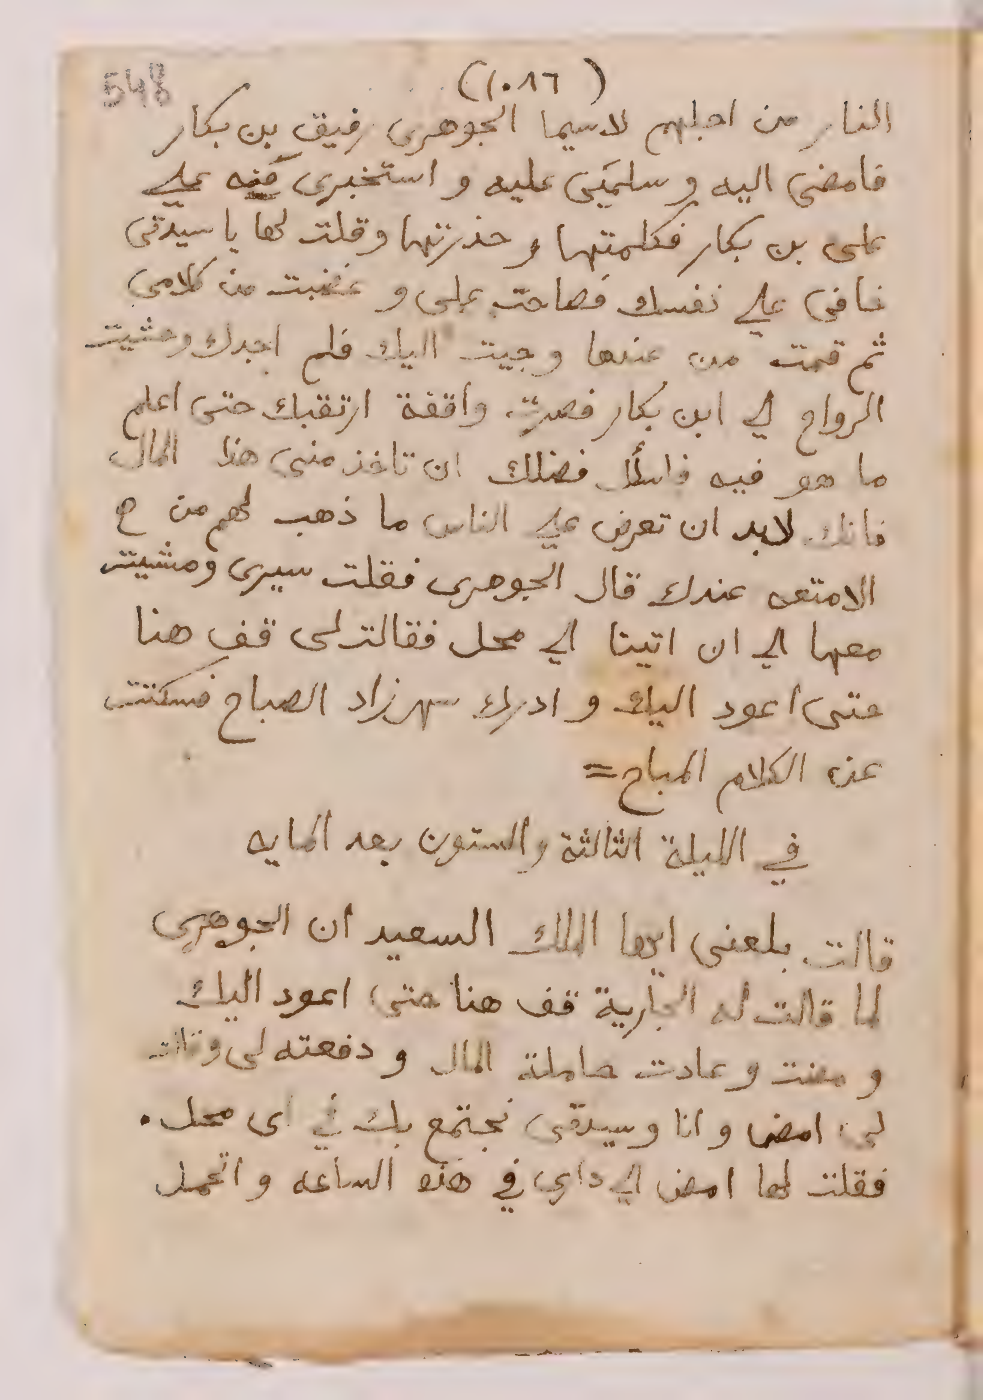 548
(١٠٨٦)
النار من اجلهم لاسيما الجوهرى رفيق بن بكار
فامضى اليه وسلمى عليه و استخبرى منه على
على بن بكار فكلمتها و حذرتها وقلت لها يا سيدتى
خافى على نفسك فصاحت على و غضبت من كلامى
ثم قمت من عندها وجيت اليك فلم اجدك وخشيت
الرواح الى ابن بكار فصرت واقفة ارتقبك حتى اعلم
ما هو فيه فاسأل فضلك ان تاخذ منى هذا المال
فانك لابد ان تعرض على الناس ما ذهب لهم من
الامتعه عندك قال الجوهرى فقلت سيرى ومشيت
معها الى ان اتينا الى محل فقالت لى قف هنا
حتى اعود اليك و ادرك سهرزاد الصباح فسكتت
عن الكلام المباح =
في الليلة الثالثة والستون بعد المايه
قالت بلغنى ايها الملك السعيد ان الجوهرى
لما قالت له الجارية قف هنا حتى اعود اليك
و مضت وعادت حاملة المال و دفعته لى وقالت
لى امض وانا وسيدتى نجتمع بك في اى محل .
فقلت لها امض الى دارى في هذه الساعه و اتحمل